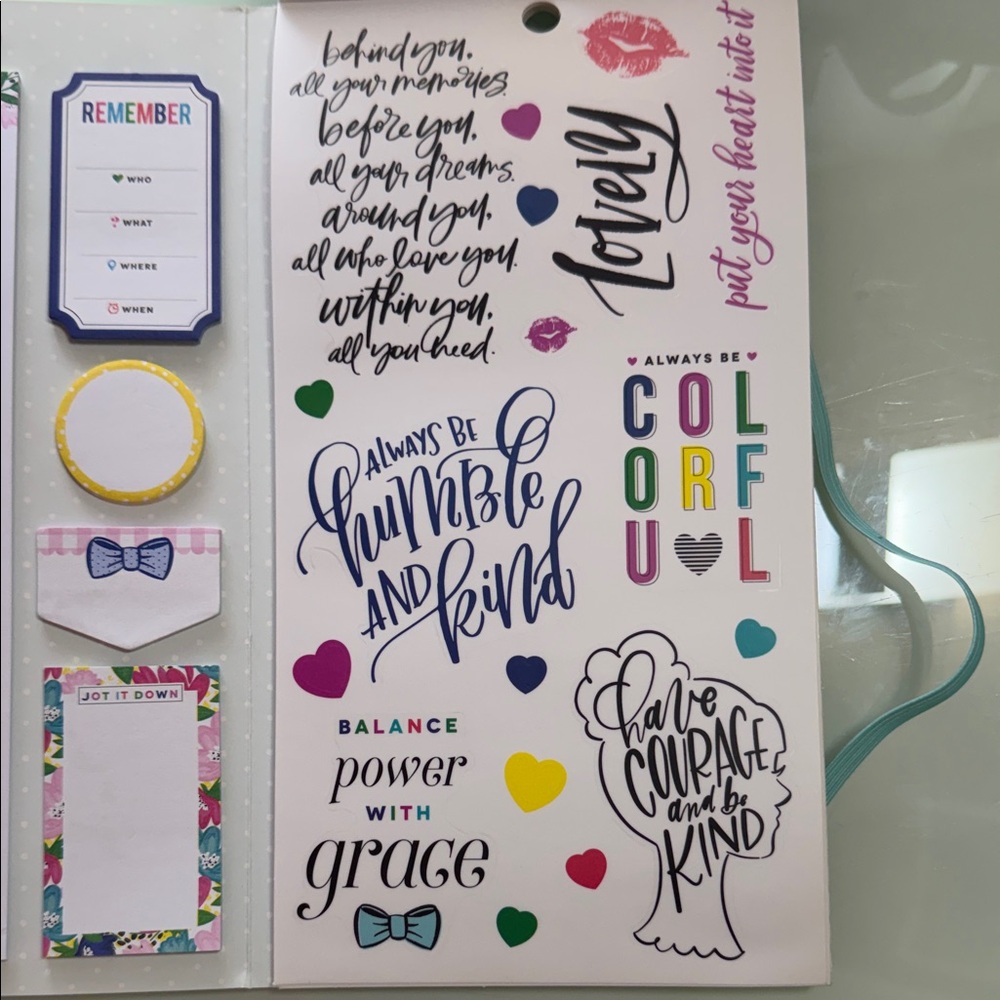 REMEMBER
WHO
WHAT
WHERE
WHEN
JOT IT DOWN
behind you,
all your memories.
before you,
all your dreams.
around you,
all who love you.
within you,
all you need.
Lovely
put your heart into it
ALWAYS BE
COL
ORF
UL
ALWAYS BE
humBle
AND kind
BALANCE
power
WITH
grace
have
COURAGE
and be
KIND